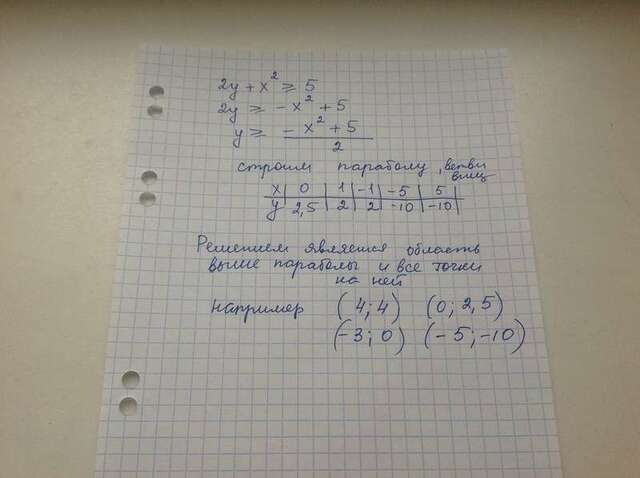 2y + x² ≥ 5
2y ≥ -x² + 5
y ≥ (-x² + 5)/2
строим параболу, ветви вниз
x | 0 | 1 | -1 | -5 | 5 |
y | 2,5 | 2 | 2 | -10 | -10 |
Решением является область
выше параболы и все точки
на ней
например (4; 4) (0; 2,5)
(-3; 0) (-5; -10)